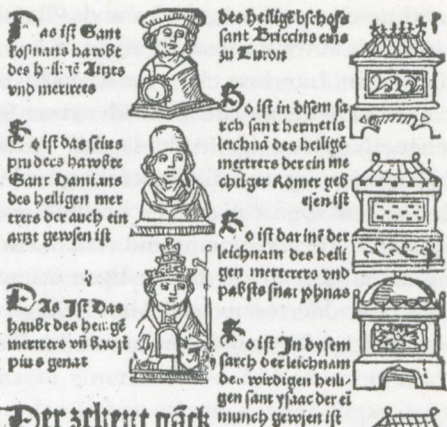 Das ist Sant
kosmans hawbt
des heiligē Artzts
vnd mertrers
So ist das seins
pruders hawbtt
Sant Damians
des heiligen mer
trers der auch ein
artzt gewesen ist
DAs Ist das
haubt des heiligē
mertrers vñ
pius genāt
Der zehent gāck
des heiligē bschofs
sant Briccius eins
zu Turon
So ist in disem sa
rch sant hermetis
leichnā des heiligē
mertrers der ein me
chtiger Romer geb
esen ist
So ist dar inē der
leichnam des heili
gen mertrers vnd
pabsts
So ist In dysem
sarch der leichnam
des wirdigen heili-
gen sant ysaac der eī
munch gewesen ist